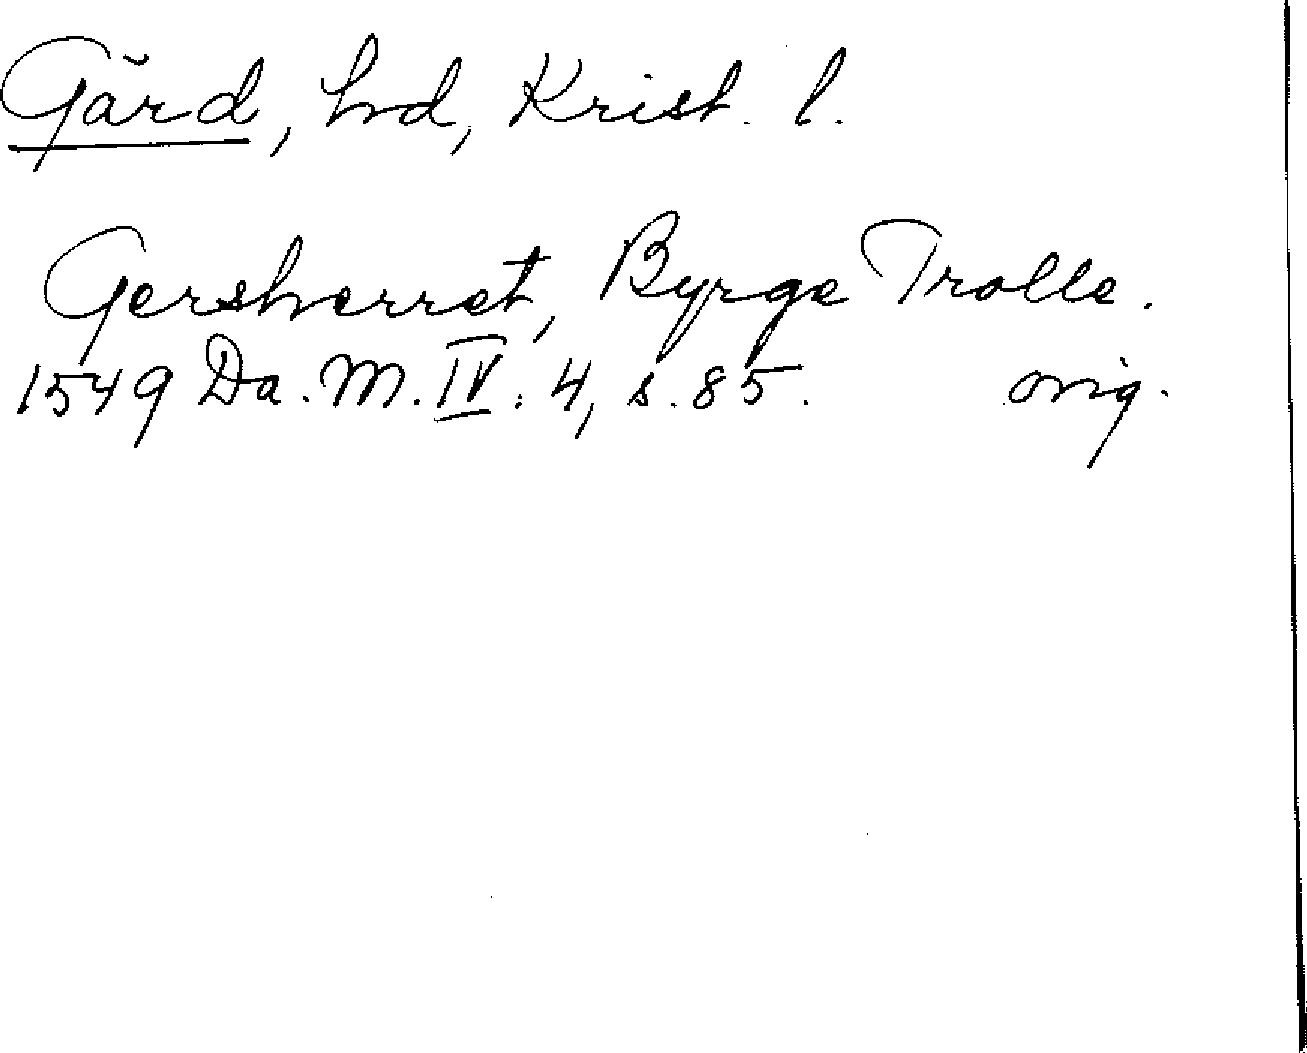 Gärd, hd, Krist. l.
Gersherret, Byrge Trolle.
1549 Da. M. IV: 4, s. 85. orig.